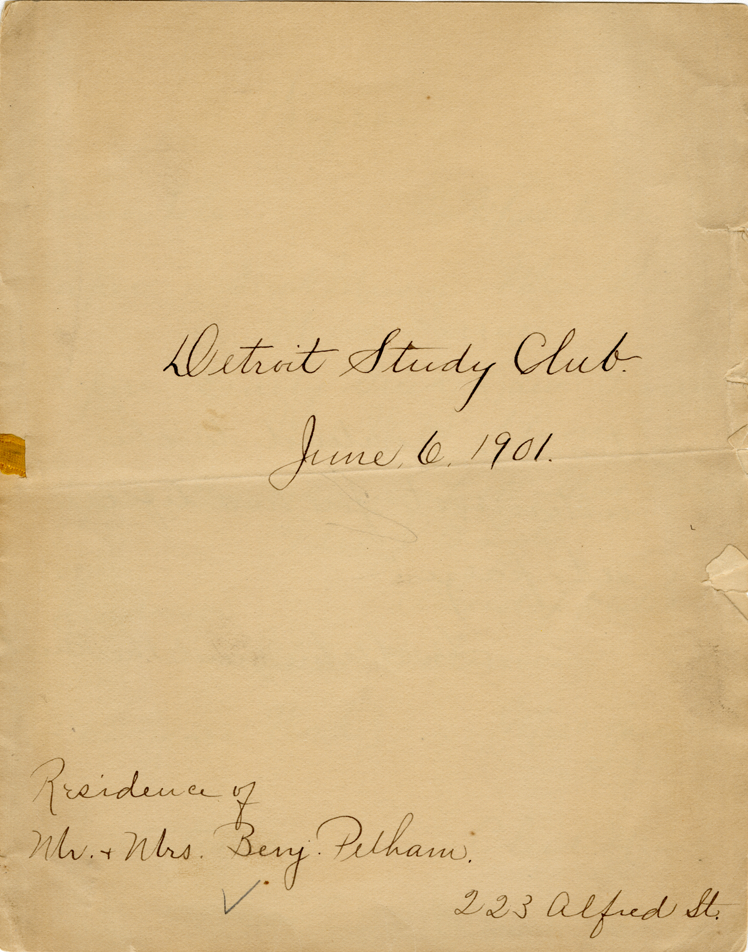 Detroit Study Club.
June, 6, 1901.
Residence of
Mr. + Mrs. Benj. Pelham.
223 Alfred St.